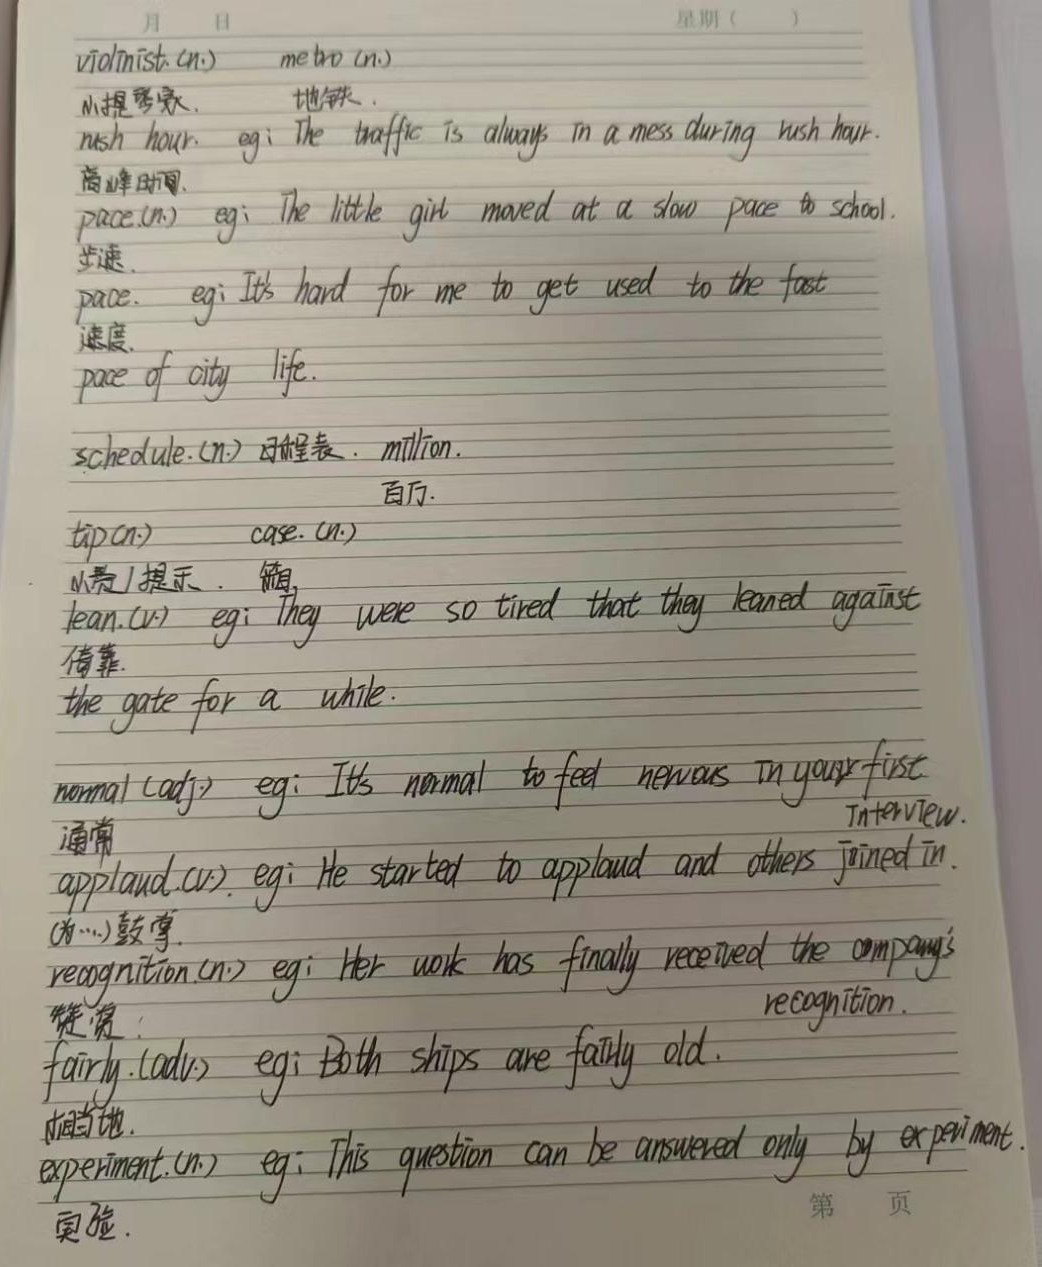 月 日 星期( )
violinist.(n.) metro (n.)
小提琴家. 地铁.
rush hour. eg: The traffic is always in a mess during rush hour.
高峰时间.
pace.(n.) eg: The little girl moved at a slow pace to school.
步速.
pace. eg: It's hard for me to get used to the fast
速度.
pace of city life.
schedule.(n.) 日程表. million.
百万.
tip(n.) case.(n.)
小费/提示. 箱.
lean.(v.) eg: They were so tired that they leaned against
倚靠.
the gate for a while.
normal (adj.) eg: It's normal to feel nervous in your first
interview.
通常
applaud.(v.). eg: He started to applaud and others joined in.
(为....)鼓掌.
recognition.(n.) eg: Her work has finally received the company's
recognition.
赞赏:
fairly.(adv.) eg: Both ships are fairly old.
相当地.
experiment.(n.) eg: This question can be answered only by experiment.
实验.
第 页